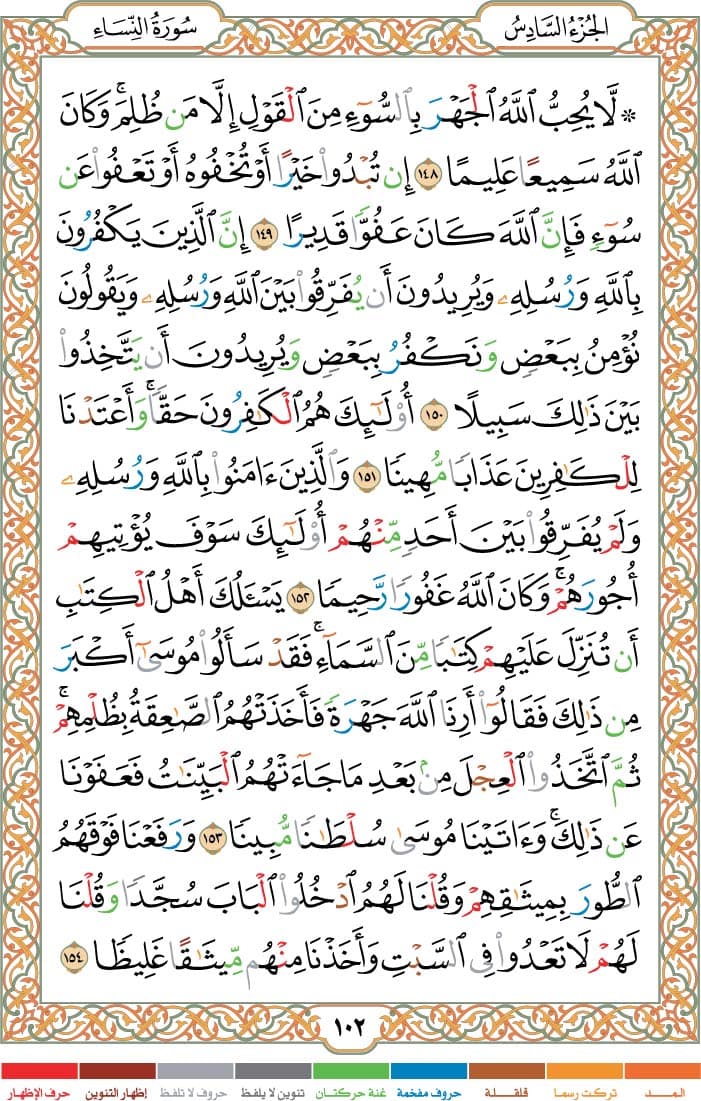 الجُزْءُ السَّادِسُ
سُورَةُ النِّسَاءِ
۞ لَّا يُحِبُّ ٱللَّهُ ٱلْجَهْرَ بِٱلسُّوٓءِ مِنَ ٱلْقَوْلِ إِلَّا مَن ظُلِمَ ۚ وَكَانَ
ٱللَّهُ سَمِيعًا عَلِيمًا ١٤٨ إِن تُبْدُوا۟ خَيْرًا أَوْ تُخْفُوهُ أَوْ تَعْفُوا۟ عَن
سُوٓءٍ فَإِنَّ ٱللَّهَ كَانَ عَفُوًّا قَدِيرًا ١٤٩ إِنَّ ٱلَّذِينَ يَكْفُرُونَ
بِٱللَّهِ وَرُسُلِهِۦ وَيُرِيدُونَ أَن يُفَرِّقُوا۟ بَيْنَ ٱللَّهِ وَرُسُلِهِۦ وَيَقُولُونَ
نُؤْمِنُ بِبَعْضٍ وَنَكْفُرُ بِبَعْضٍ وَيُرِيدُونَ أَن يَتَّخِذُوا۟
بَيْنَ ذَٰلِكَ سَبِيلًا ١٥٠ أُو۟لَـٰٓئِكَ هُمُ ٱلْكَـٰفِرُونَ حَقًّا ۚ وَأَعْتَدْنَا
لِلْكَـٰفِرِينَ عَذَابًا مُّهِينًا ١٥١ وَٱلَّذِينَ ءَامَنُوا۟ بِٱللَّهِ وَرُسُلِهِۦ
وَلَمْ يُفَرِّقُوا۟ بَيْنَ أَحَدٍ مِّنْهُمْ أُو۟لَـٰٓئِكَ سَوْفَ يُؤْتِيهِمْ
أُجُورَهُمْ ۗ وَكَانَ ٱللَّهُ غَفُورًا رَّحِيمًا ١٥٢ يَسْـَٔلُكَ أَهْلُ ٱلْكِتَـٰبِ
أَن تُنَزِّلَ عَلَيْهِمْ كِتَـٰبًا مِّنَ ٱلسَّمَآءِ ۚ فَقَدْ سَأَلُوا۟ مُوسَىٰٓ أَكْبَرَ
مِن ذَٰلِكَ فَقَالُوٓا۟ أَرِنَا ٱللَّهَ جَهْرَةً فَأَخَذَتْهُمُ ٱلصَّـٰعِقَةُ بِظُلْمِهِمْ ۚ
ثُمَّ ٱتَّخَذُوا۟ ٱلْعِجْلَ مِنۢ بَعْدِ مَا جَآءَتْهُمُ ٱلْبَيِّنَـٰتُ فَعَفَوْنَا
عَن ذَٰلِكَ ۚ وَءَاتَيْنَا مُوسَىٰ سُلْطَـٰنًا مُّبِينًا ١٥٣ وَرَفَعْنَا فَوْقَهُمُ
ٱلطُّورَ بِمِيثَـٰقِهِمْ وَقُلْنَا لَهُمُ ٱدْخُلُوا۟ ٱلْبَابَ سُجَّدًا وَقُلْنَا
لَهُمْ لَا تَعْدُوا۟ فِى ٱلسَّبْتِ وَأَخَذْنَا مِنْهُم مِّيثَـٰقًا غَلِيظًا ١٥٤
١٠٢
المـــد تركت رسما قلقـــلة حروف مفخمة غنة حركتـان تنوين لا يلفظ حروف لا تلفظ إظهار التنوين حرف الإظهار